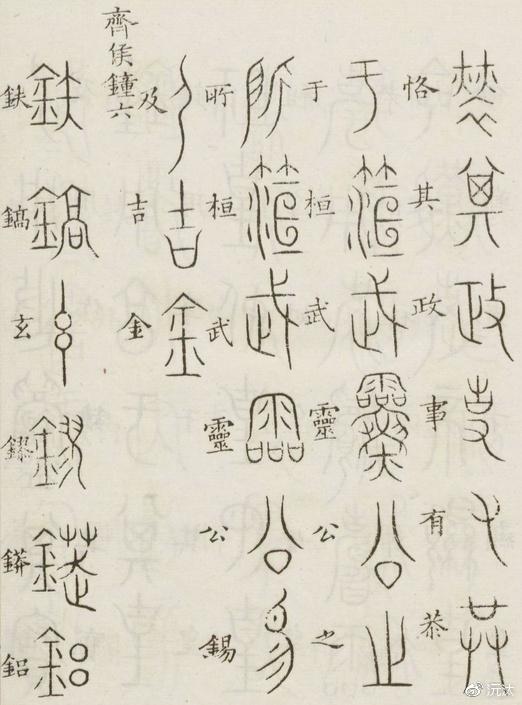 恪其政事有恭
于桓武靈公之
所桓武靈公錫
及吉金
齊侯鐘六
鈇鎬玄鏐鋁
沅汰